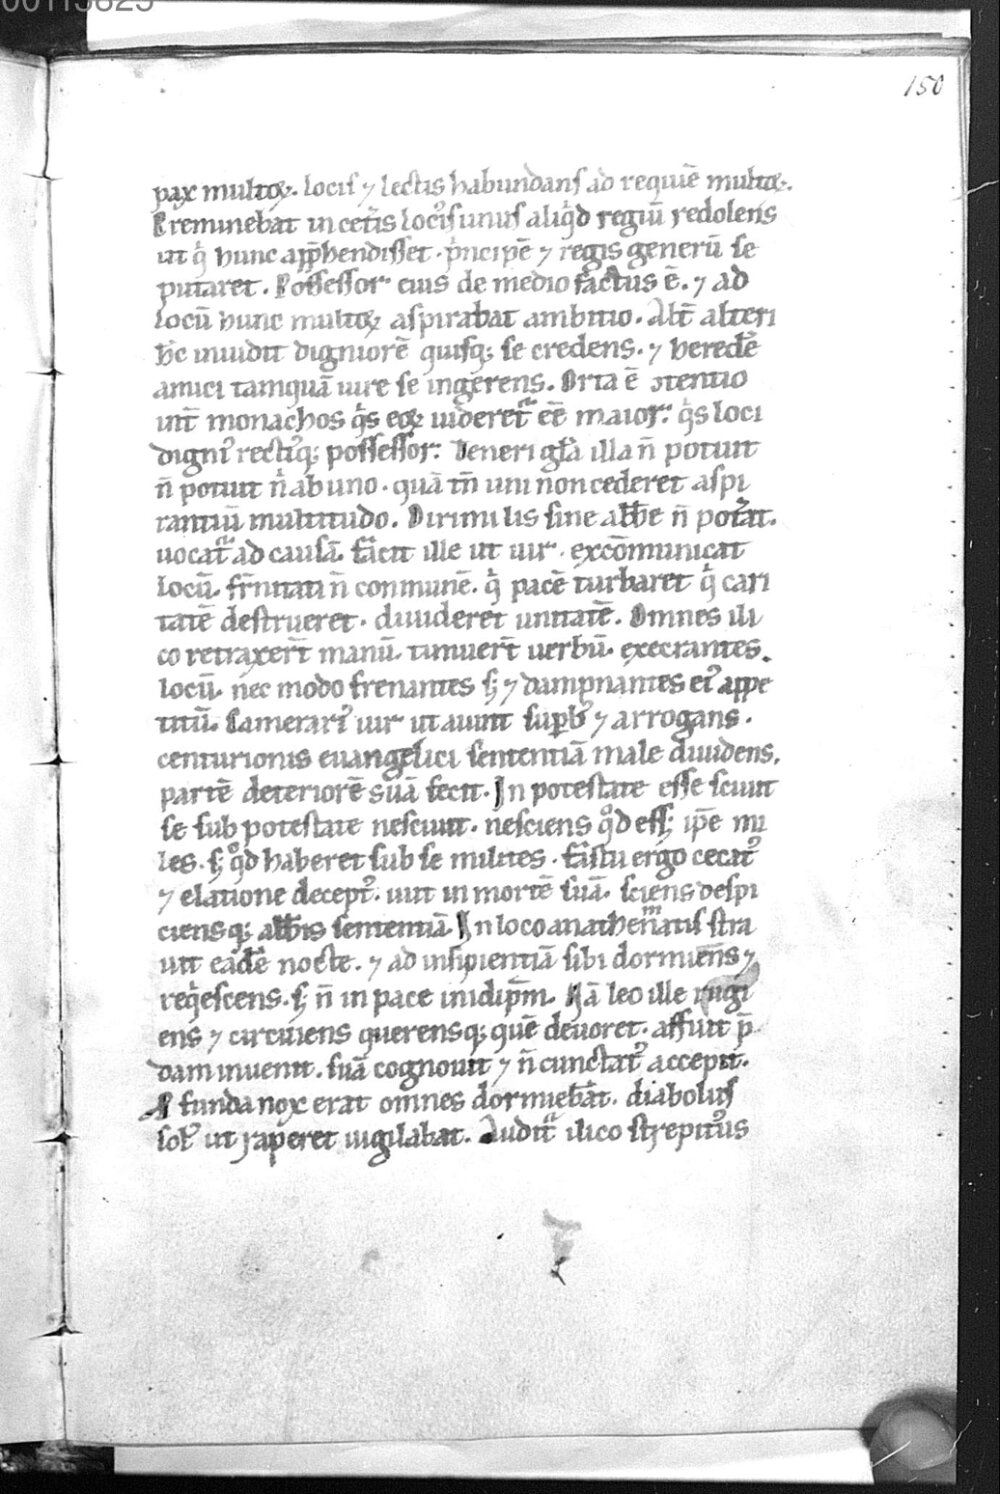 150
pax multoꝝ. locis ⁊ lectis habundans ad requiē multoꝝ.
Preminebat in cet̄is locis unus aliqͥd regiū redolens
ut qͥ hunc app̄hendisset. pͥncipē ⁊ regis generū se
putaret. Possessor eius de medio factus ē. ⁊ ad
locū hunc multoꝝ aspirabat ambitio. Alt̄ alteri
hͨ inuidit digniorē quisq; se credens. ⁊ heredē
amici tamquā iure se ingerens. Orta ē ↄtentio
int̄ monachos qͥs eoꝝ uideret᷑ eē maior. qͥs loci
dignꝰ rectiꝰq; possessor. Veneri gl̄a illa n̄ potuit
n̄ potuit nͥ ab uno. quā tn̄ uni non cederet aspi
rantiū multitudo. Dirimi lis sine abbē n̄ poterat.
uocat᷑ ad causā. facit ille ut uir. excōmunicat
locū. fr̄nitati n̄ conmunē. qͥ pacē turbaret qͥ cari
tatē destrueret. diuideret unitatē. Omnes ili
co retraxer̄t manū. timuer̄t uerbū. execrantes
locū. nec modo frenantes sꝫ ⁊ dampnantes eiꝰ appe
titū. Camerariꝰ uir ut aiunt sup̄bꝰ ⁊ arrogans.
centurionis euangelici sententiā male diuidens.
partē deteriorē suā fecit. In potestate esse sciuit
se sub potestate nesciuit. nesciens qͦd essꝫ ip̄e mi
les. sꝫ qͦd haberet sub se milites. Fastu ergo cecatꝰ
⁊ elatione deceptꝰ. uiit in mortē suā. sciens despi
ciensq; abb̄is sententiā. In loco anathematis stra
uit eādē nocte. ⁊ ad insipientiā sibi dormiens ⁊
reqͥescens. sꝫ n̄ in pace in idip̄m. Nā leo ille rugi
ens ⁊ circuiens querensq; quē deuoret. affuit p̄
dam inuenit. suā cognouit ⁊ n̄ cunctatꝰ accepit.
Pfunda nox erat omnes dormiebāt. diabolus
solꝰ ut raperet uigilabat. Audit᷑ ilico strepitus